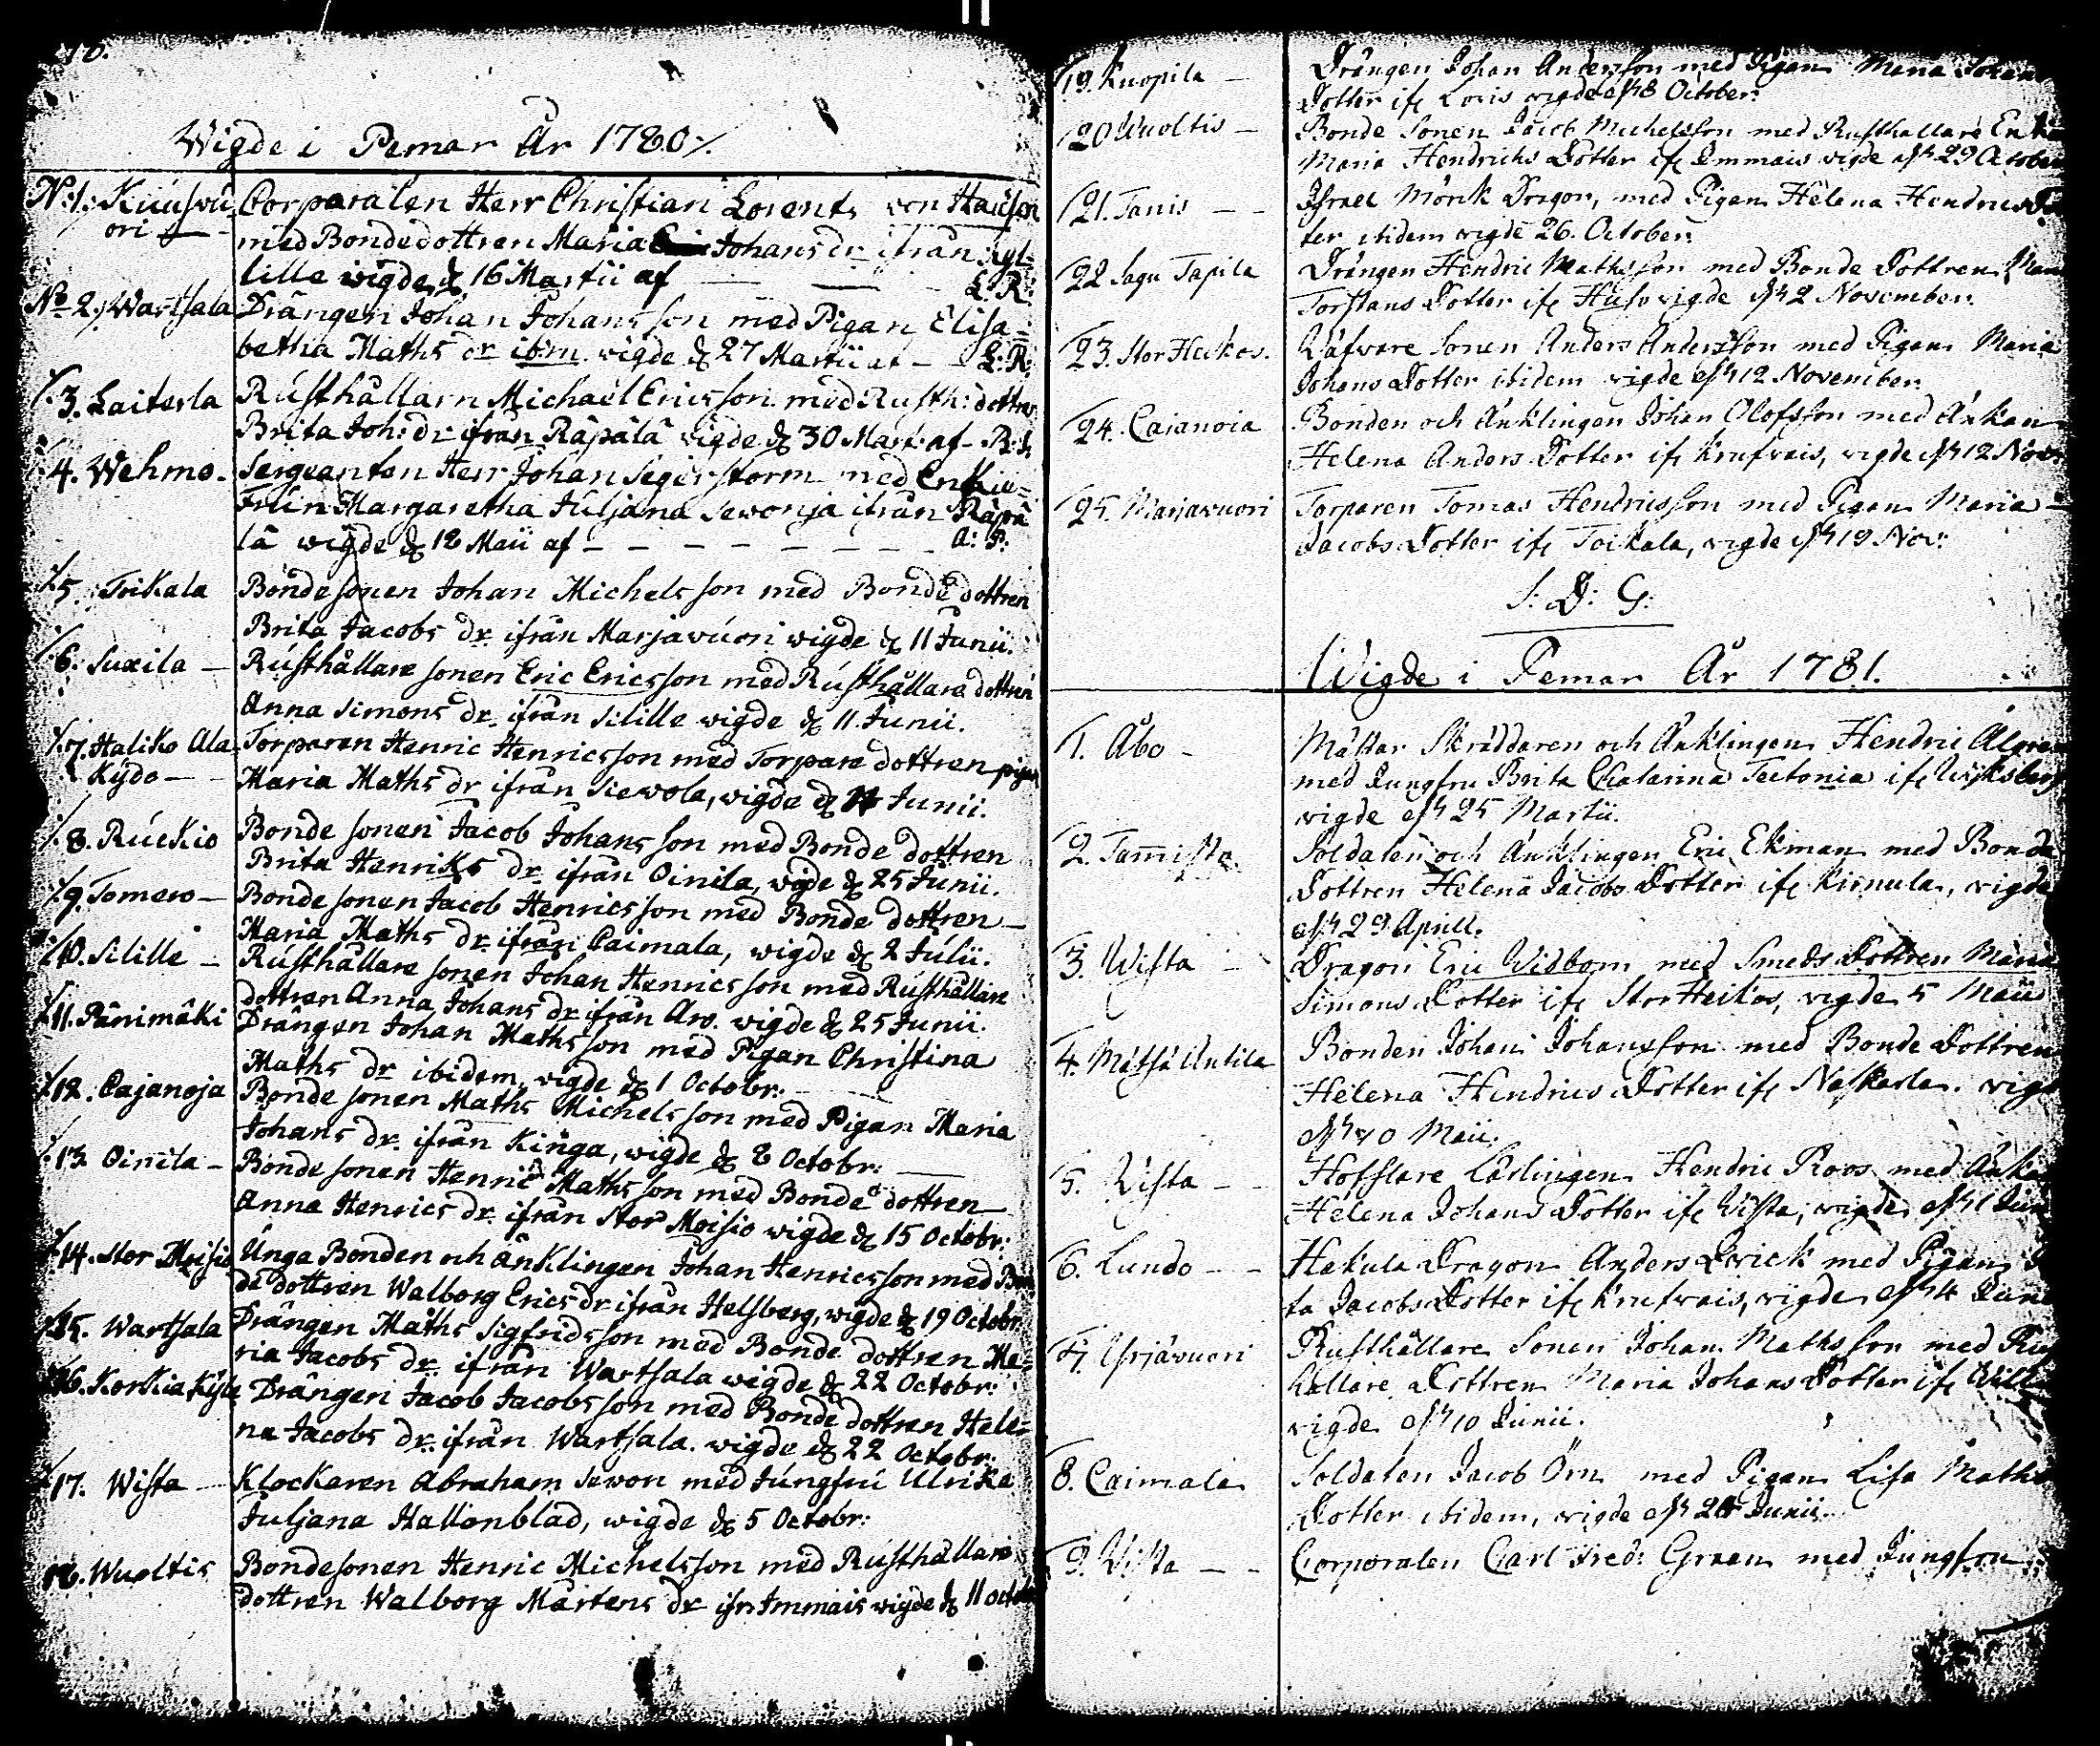 Wigde i Pemar År 1780 ⁒
N:1: Kúúsvú Corporalen Herr Christian Lorents von Hausen
ori med Bondedottren Maria Johans dr ifrån
lille wigde d 16 Martii af L: R:
No 2. Wartsala Drängen Johan Johansson med Pigan Elisa-
betha Maths dr ibm wigde d 27 Martii af L: R:
3. Laiterla Rústhållarn Michaël Ericsson med Rústh: dottren
Brita Joh: dr ifrån Räpälä wigde d 30 Mart: af
4. Wehmo Sergeanten Herr Johan Segerstorm med Enkie-
Frún Margaretha Juljana Sevonja ifrån Räpä
lä wigde d 12 Maii af A: P:
5. Toikala Bondesonen Johan Michelsson med Bonde dottren
Brita Jacobs dr ifrån Marjavúori wigde d 11 Junii.
6. Suxila Rústhållare sonen Eric Ericsson med Rústhållare dottren
Anna Simons dr ifrån Silille wigde d 11 Junii.
7. Haliko Ala Torparen Henric Henricsson med Torpare dottren pigan
Kÿdo Maria Maths dr ifrån Siewola, wigde d Junii.
8. Rúckio Bonde sonen Jacob Johansson med Bonde dottren
Brita Henriks dr ifrån Oinila, wigde d 25 Junii.
9. Tomero Bonde sonen Jacob Henricsson med Bonde dottren
Maria Maths dr ifrån Caimala, wigde d 2 Júlii.
10. Silille Rústhållare sonen Johan Henricsson med Rústhållare
dottren Anna Johans dr ifrån Aro. wigde d 25 Junii.
11. Pänimäki Drängen Johan Mathsson med Pigan Christina
Maths dr ibidem, wigde d 1 Octobr:
12. Cajanoja Bonde sonen Maths Michelsson med Pigan Maria
Johans dr ifrån Kinga, wigde d 8 Octobr:
13. Oinila Bonde sonen Henric Mathsson med Bonde dottren
Anna Henrics dr ifrån Stor Moisio wigde d 15 Octobr:
14. Stor Moisio Unga Bonden och änklingen Johan Henricsson med Bon
de dottren Walborg Erics dr ifrån Helsberg, wigde d 19 Octobr:
15. Wartsala Drängen Maths Sigfridsson med Bonde dottren Ma-
ria Jacobs dr ifrån Wartsala wigde d 22 Octobr:
16. Korkiakÿle Drängen Jacob Jacobsson med Bonde dottren Hele-
na Jacobs dr ifrån Wartsala wigde d 22 Octobr:
17. Wista Klockaren Abraham Sevon med Jungfrú Ulrika
Juljana Hallonblad, wigde d 5 Octobr:
18. Wuoltis Bondesonen Henric Michelsson med Rústhållare
dottren Walborg Mårtens dr ifr. Immais wigde d 11 octobr
19. Kuopila Drängen Johan Andersson med Pigan Maria Johans
Dotter ifr Loris wigde d 8 October.
20 Wuoltis Bonde Sonen Jacob Michelsson med Rusthållare Enkan
Maria Hendrichs Dotter ifr Immais wigde d 29 October
21. Tanis Israel Mörck Dragon, med Pigan Helena Hendrics Dot
ter ibidem wigde 26. October.
22 Sagu Tapila Drängen Hendric Mathsson med Bonde Dottren
Torstans Dotter ifr wigde d 2 November.
23. Stor Heikos. Anders Andersson med Pigan Maria
Johans Dotter ibidem wigde d 12 November.
24. Caianoia Bonden och Änklingen Johan Olofsson med Änkan
Helena Anders Dotter ifr Krufvais, wigde d 12 Novr
25. Mariavuori Torparen Tomas Hendricsson med Pigan Maria
Jacobs Dotter ifr Toikala, wigde d 19 Nov:
S: D: G:
Wigde i Pemar År 1781.
1. Åbo Mästar Skräddaren och Änklingen Hendric
med Jungfru Brita Chatarina Tectonia ifr
wigde d 25 Martii.
2. Tam̄isto Soldaten och Änklingen Eric Ekman med Bonde
Dottren Helena Jacobs Dotter ifr Kirnula, wigde
d 29 Aprill.
3. Wista Dragon Eric Widbom med Smeds Dottren Maria
Simons Dotter ifr Stor Heikos, wigde 5 Maii
4. Mätsä Antila Bonden Johan Johansson med Bonde Dottren
Helena Hendrics Dotter ifr Naskarla. wigde
Maii.
5. Wista Hofslare Lärlingen Hendric Roos med Änkan
Helena Johans Dotter ifr Wista, wigde d 1 Jun
6. Lundo Hakula Dragon Anders Qvick med Pigan
ta Jacobs Dotter ifr Krufvais, wigde d 4 Junii
7. Ysrjävuori Rusthållare Sonen Johan Mathsson med Rust
hållare Dottren Maria Johans Dotter ifr
wigde d 10 Junii.
8. Caimala Soldaten Jacob Örn med Pigan Lisa Maths
Dotter ibidem, wigde d 24 Junii.
9. Wista Corporalen Carl Fred: Graen med Jungfru